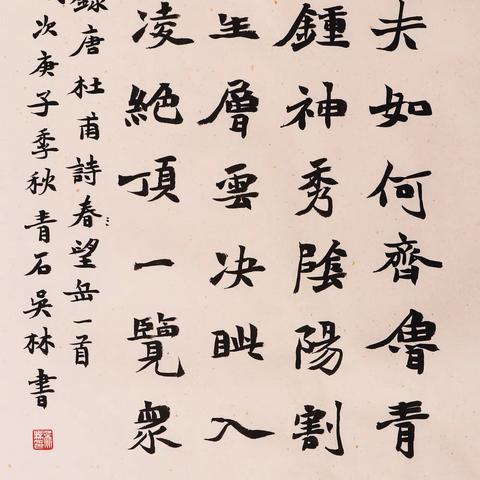 夫如何齊魯青
鍾神秀陰陽割
生層雲決眦入
凌絕頂一覽衆
錄唐杜甫詩春望岳一首
次庚子季秋青石吳林書